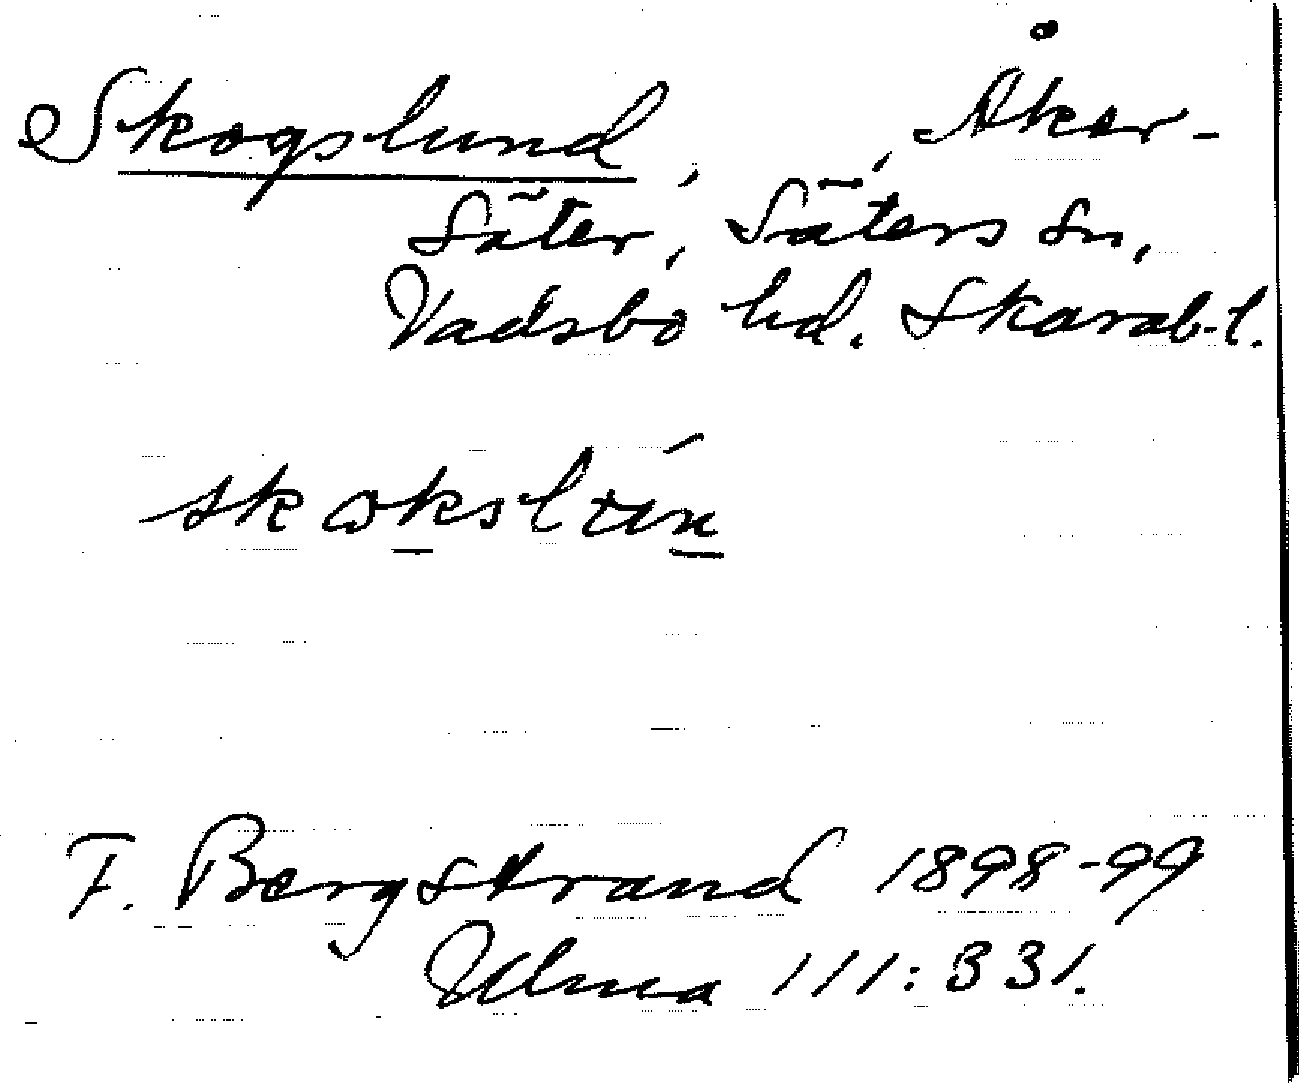 Skoglund, , Åker-
Säter, Säters Sn,
Vadsbo hd. Skarab-l.
F. Bergstrand 1898-99
Ulma 111:331.